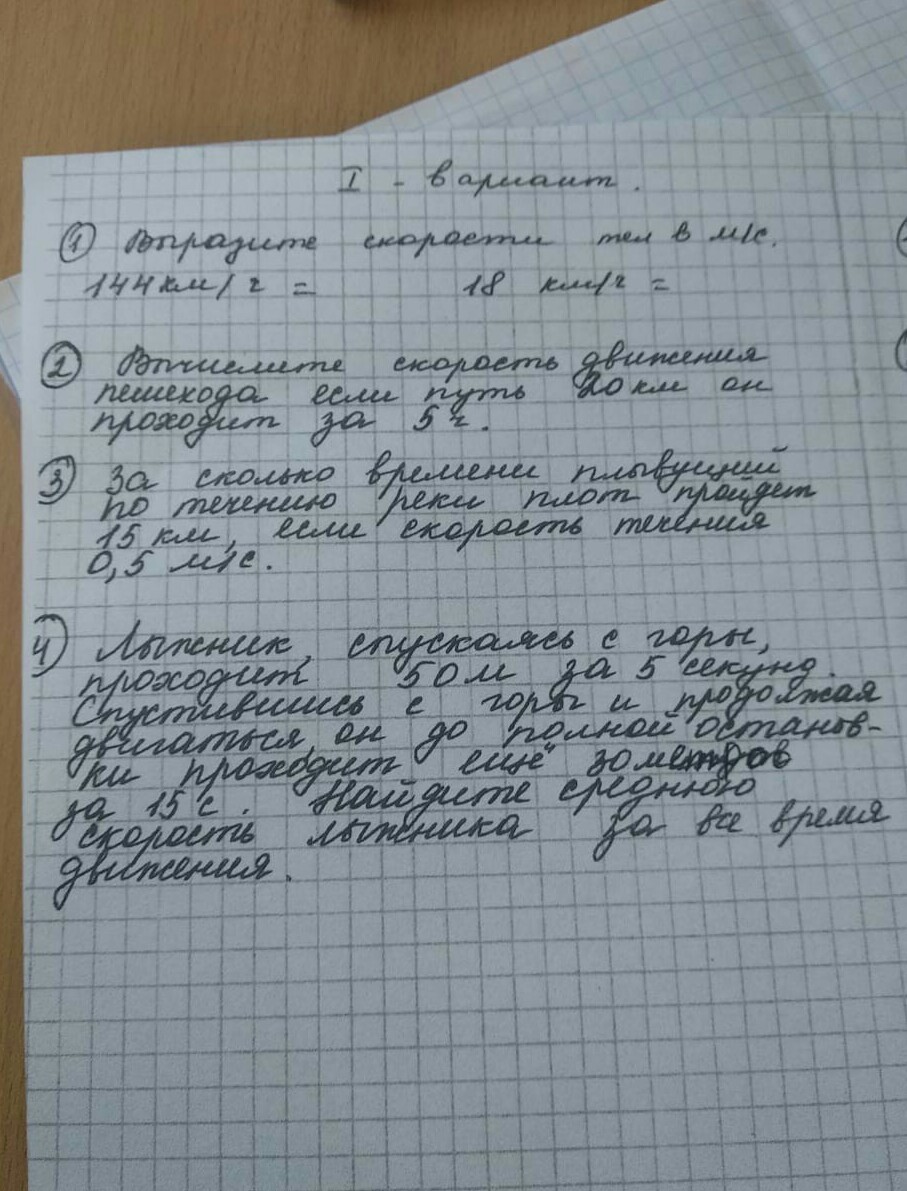 I - вариант.
① Выразите скорости тел в м/с.
144 км/ч = 18 км/ч =
② Вычислите скорость движения
пешехода если путь 20 км он
проходит за 5 ч.
③ За сколько времени плывущий
по течению реки плот пройдет
15 км, если скорость течения
0,5 м/с.
4) Лыжник, спускаясь с горы,
проходит 50 м за 5 секунд.
Спустившись с горы и продолжая
двигаться, он до полной останов-
ки проходит ещё 30 метров
за 15 с. Найдите среднюю
скорость лыжника за все время
движения.